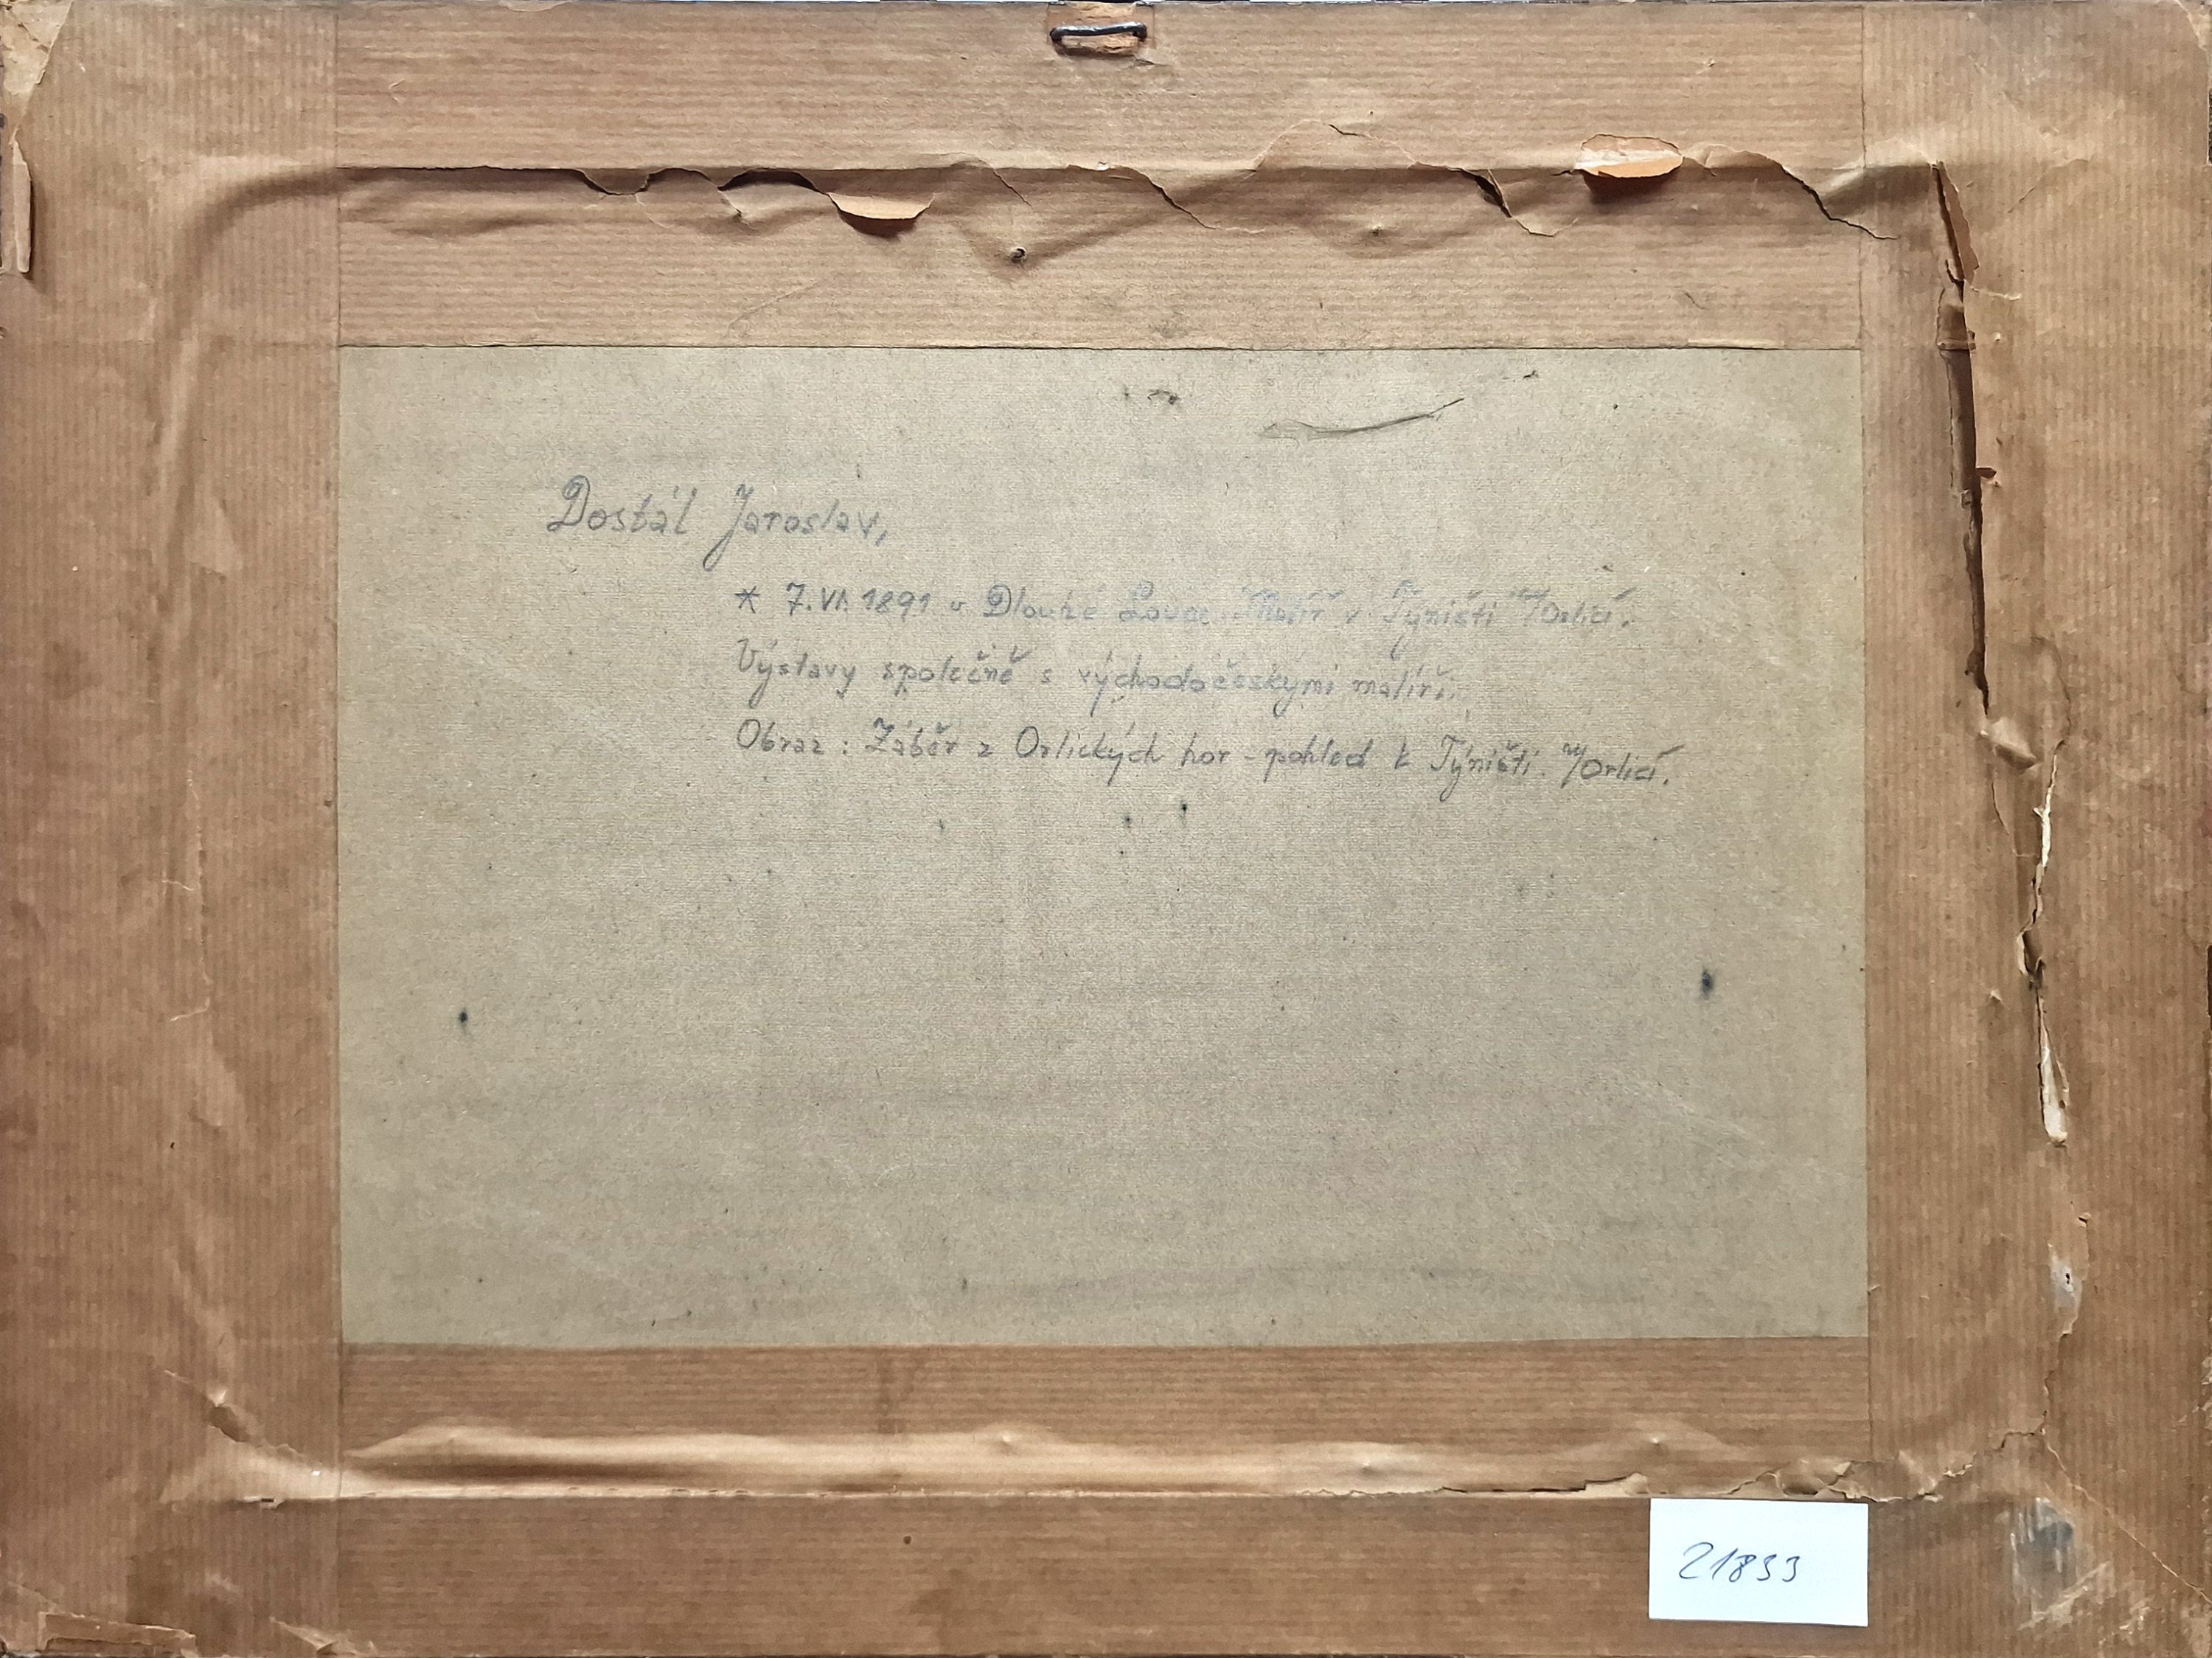 Dostál Jaroslav,
* 7. VI. 1891 v Dlouhé Louce. Malíř v Týništi n/Orlicí.
Výstavy společně s východočeskými malíři.
Obraz: Záběr z Orlických hor - pohled k Týništi n/Orlicí.
21833